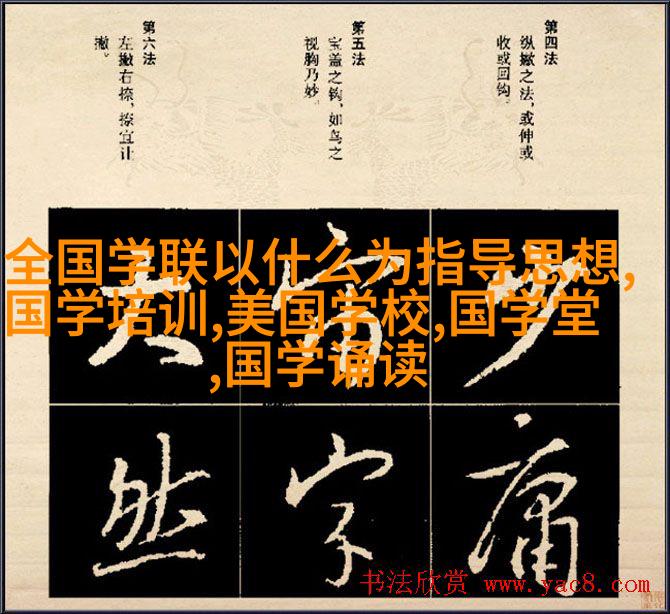 第四法
纵撇之法，或伸或
收或回钩。
第五法
宝盖之钩，如鸟之
视胸乃妙。
第六法
左撇右捺，捺宜让
撇。
全国学联以什么为指导思想,
国学培训,美国学校,国学堂
,国学诵读
然 字 庸
书法欣赏 www.yac8.com